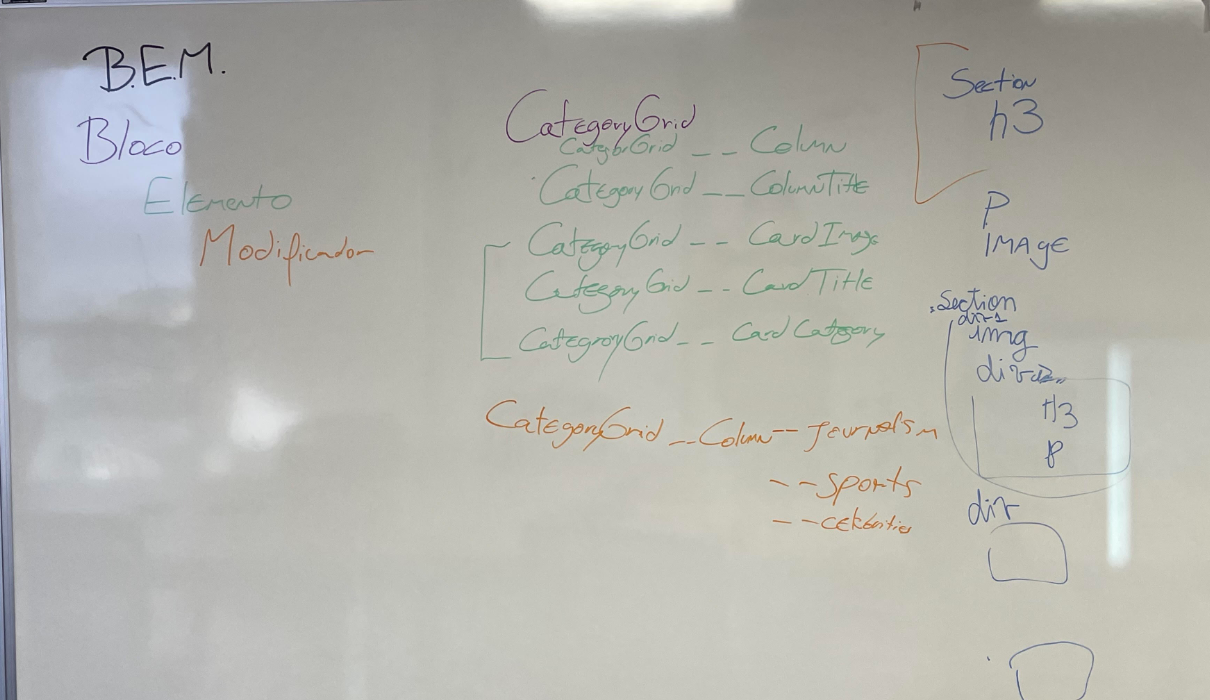 B.E.M.
Bloco
Elemento
Modificador
CategoryGrid
CategorGrid__Column
CategoryGrid__ColumnTitle
CategoryGrid--CardImage
CategoryGrid--CardTitle
CategroyGrid--CardCategory
CategoryGrid__Column--journalism
--sports
Section
h3
P
IMAGE
.Section
img
H3
P
div